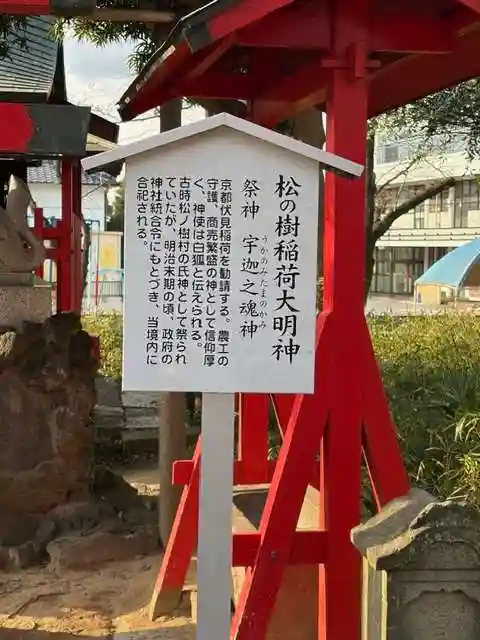 松の樹稲荷大明神
祭神 宇迦之魂神
うかのみたまのかみ
京都伏見稲荷を勧請する。農工の
守護、商売繁盛の神として信仰厚
く、神使は白狐と伝えられる。
古時松ノ樹村の氏神として祭られ
ていたが、明治末期の頃、政府の
神社統合令にもとづき、当境内に
合祀される。